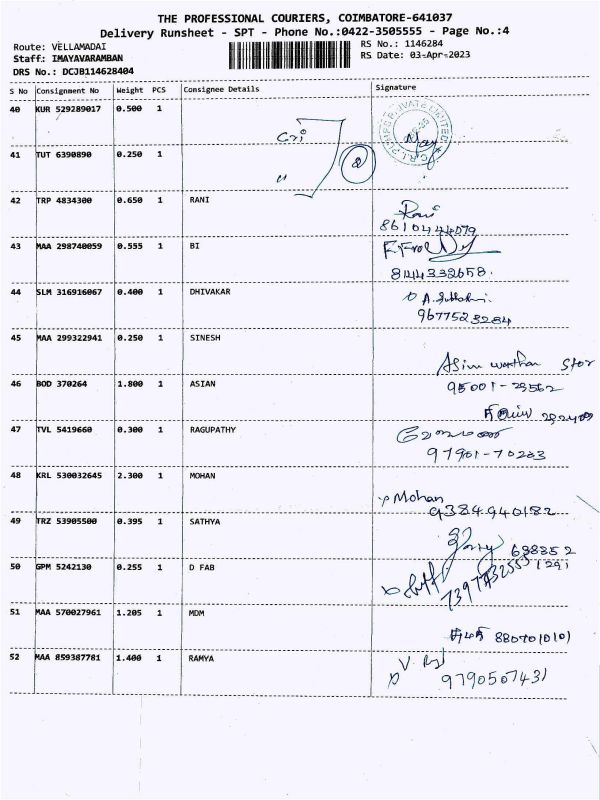 THE PROFESSIONAL COURIERS, COIMBATORE-641037
Delivery Runsheet - SPT - Phone No.:0422-3505555 - Page No.:4
Route: VELLAMADAI
Staff: IMAYAVARAMBAN
DRS No.: DCJB114628404
RS No.: 1146284
RS Date: 03-Apr-2023
S No Consignment No Weight PCS Consignee Details Signature
40 KUR 529289017 0.500 1
Cri
41 TUT 6390890 0.250 1
2
42 TRP 4834300 0.650 1 RANI Rani
8610444079
43 MAA 298740059 0.555 1 BI
8144332658.
44 SLM 316916067 0.400 1 DHIVAKAR
9677523284
45 MAA 299322941 0.250 1 SINESH
46 BOD 370264 1.800 1 ASIAN
95001-29562
47 TVL 5419660 0.300 1 RAGUPATHY
97901-70283
48 KRL 530032645 2.300 1 MOHAN Mohan
9384940182
49 TRZ 53905500 0.395 1 SATHYA
638352
1291
50 GPM 5242130 0.255 1 D FAB
51 MAA 570027961 1.205 1 MDM
8807010101
52 MAA 859387781 1.400 1 RAMYA
9790507431